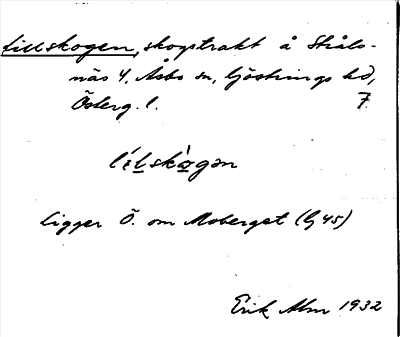 Lillskogen, skogstrakt å Stråls-
näs 4, Åsbo sn, Göstrings hd,
Österg. l. 7.
ligger Ö. om Moberget (G 45)
Erik Alm 1932